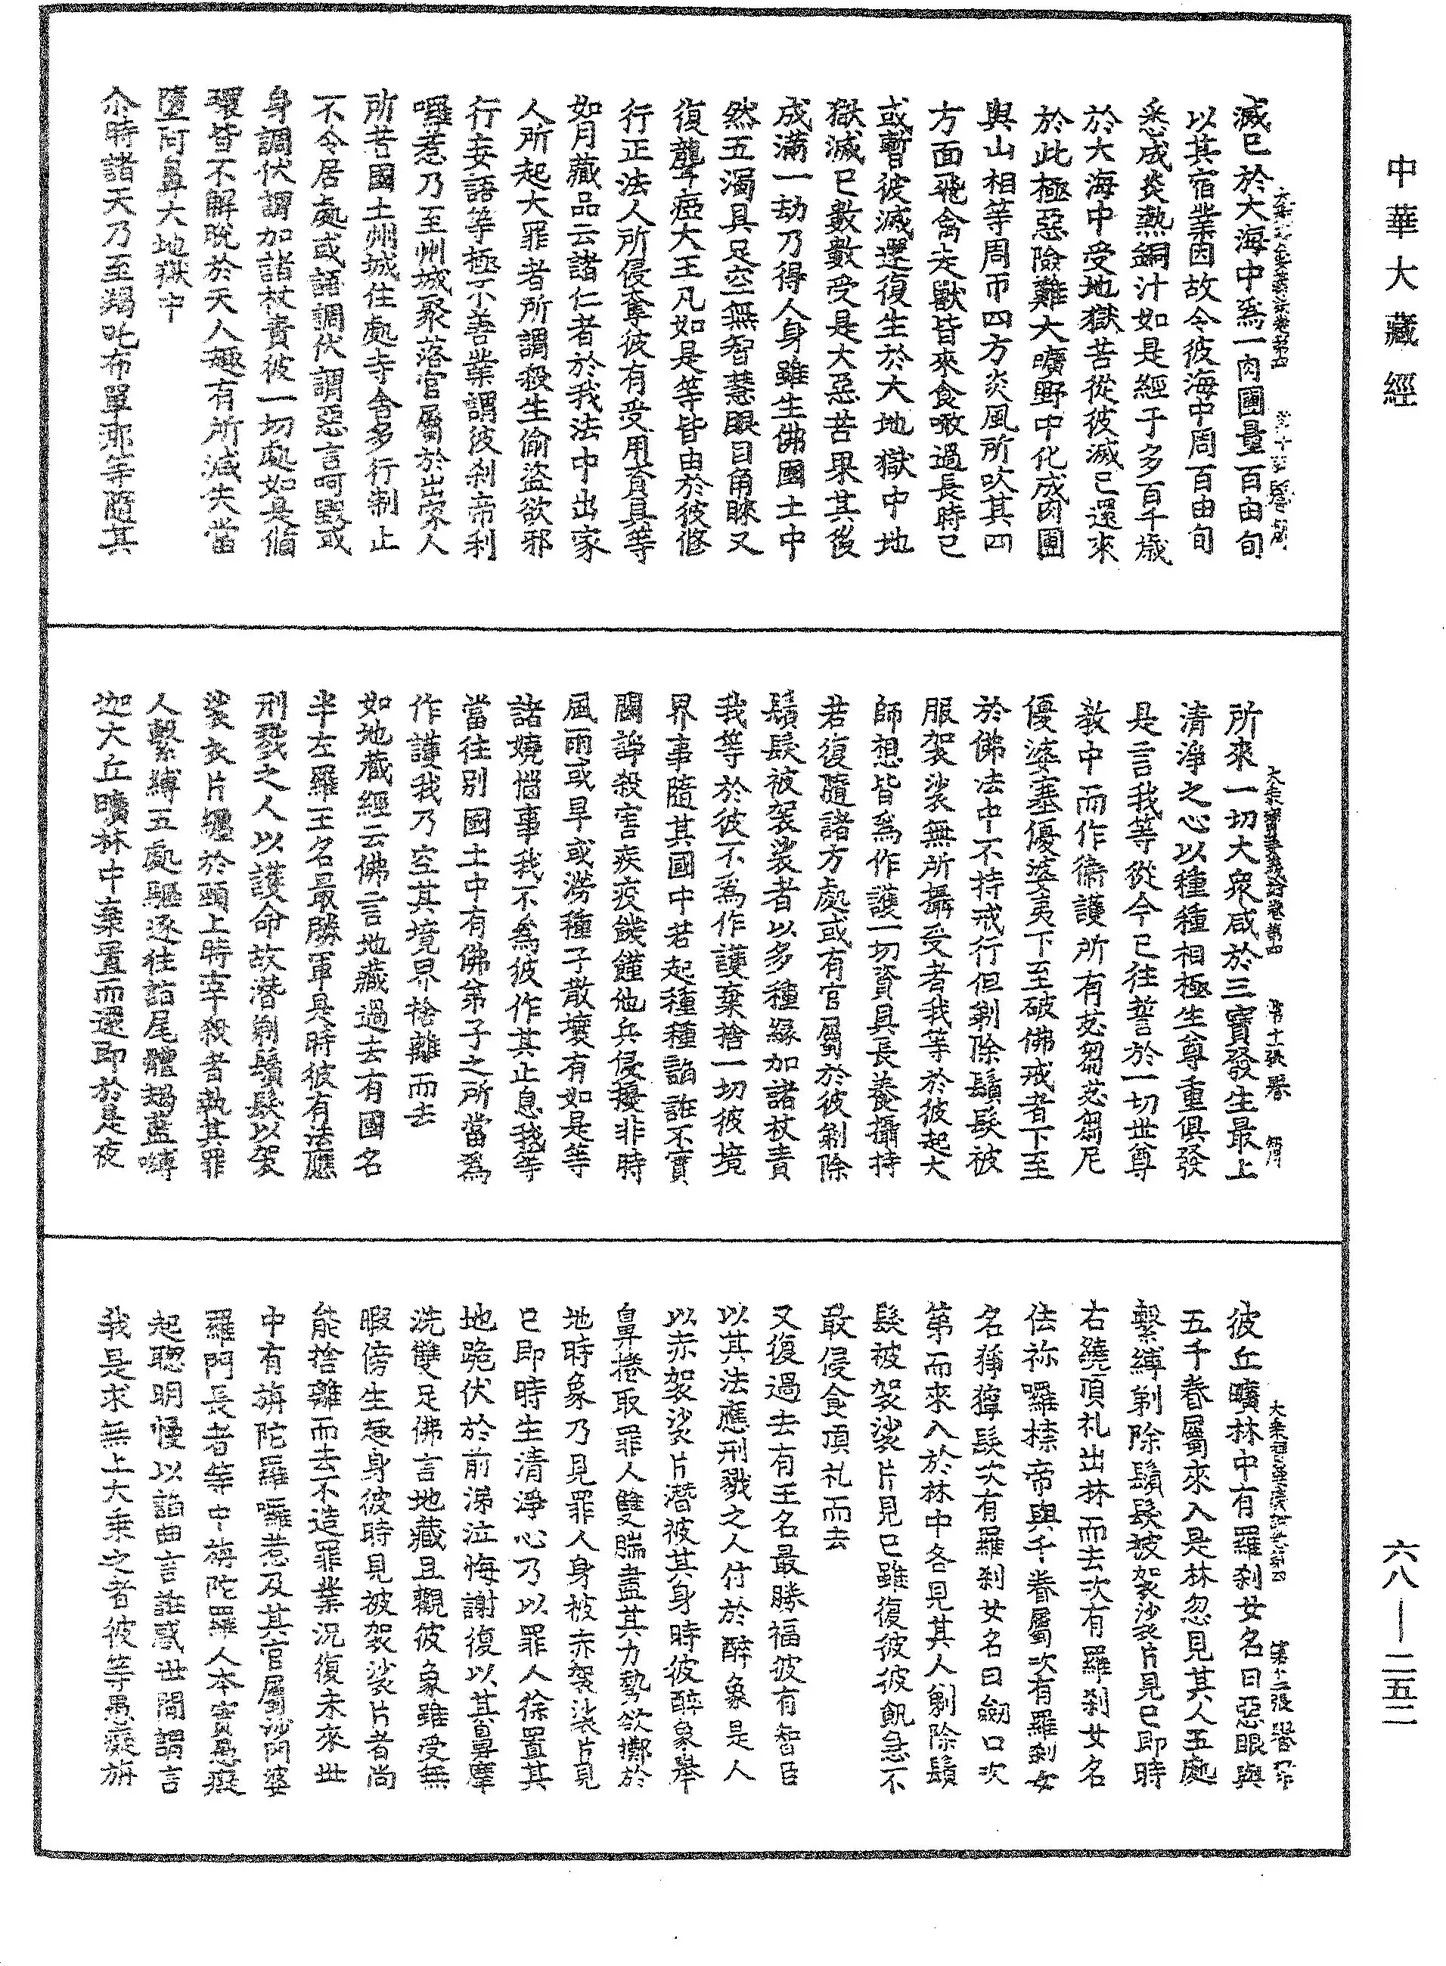 中華大藏經
滅已於大海中為一肉團量百由旬
以其宿業因故令彼海中周百由旬
悉成炎熱銅汁如是經于多百千歲
於大海中受地獄苦從彼滅已還來
於此極惡險難大曠野中化成肉團
與山相等周帀四方炎風所吹其四
方面飛禽走獸皆來食噉過長時已
或暫彼滅還復生於大地獄中地
獄滅已數數受是大惡苦果其後
成滿一劫乃得人身雖生佛國土中
然五濁具足空無智慧眼目角睞又
復聾瘂大王凡如是等皆由於彼修
行正法人所侵奪彼有受用資具等
如月藏品云諸仁者於我法中出家
人所起大罪者所謂殺生偷盜欲邪
行妄語等極不善業謂彼剎帝利
囉惹乃至州城聚落官屬於出家人
所若國土州城住處寺舍多行制止
不令居處或語調伏謂惡言呵毀或
身調伏謂加諸杖責彼一切處如是傾
環皆不解脫於天人趣有所減失當
墮阿鼻大地獄中
尒時諸天乃至羯吒布單那等隨其
大乘寶要義論卷第四 第十一張 
所來一切大衆咸於三寶發生最上
清淨之心以種種相極生尊重俱發
是言我等從今已往誓於一切世尊
教中而作衛護所有苾芻苾芻尼
優婆塞優婆夷下至破佛戒者下至
於佛法中不持戒行但剃除鬚髮被
服袈裟無所攝受者我等於彼起大
師想皆為作護一切資具長養攝持
若復隨諸方處或有官屬於彼剃除
鬚髮被袈裟者以多種緣加諸杖責
我等於彼不為作護棄捨一切彼境
界事隨其國中若起種種諂誑不實
鬬諍殺害疾疫饑饉他兵侵擾非時
風雨或旱或澇種子散壞有如是等
諸嬈惱事我不為彼作其止息我等
當往別國土中有佛弟子之所當為
作護我乃空其境界捨離而去
如地藏經云佛言地藏過去有國名
半左羅王名最勝軍是時彼有法應
刑戮之人以護命故潛剃鬚髮以袈
裟衣片纏於頭上時宰殺者執其罪
人繫縛五處驅逐往詣尾體羯藍嚩
迦大丘曠林中棄置而還即於是夜
大乘寶要義論卷第四 第十二張
彼丘曠林中有羅剎女名曰惡眼與
五千眷屬來入是林忽見其人五處
繫縛剃除鬚髮被袈裟片見已即時
右繞頂礼出林而去次有羅剎女名
佉祢囉㮈帝與千眷屬次有羅剎女
名獰獰髮次有羅剎女名曰劒口次
第而來入於林中各見其人剃除鬚
髮被袈裟片見已雖復彼彼飢急不
敢侵食頂礼而去
又復過去有王名最勝福彼有智臣
以其法應刑戮之人付於醉象是人
以赤袈裟片潛彼其身時彼醉象舉
鼻捲取罪人雙腨盡其力勢欲擲於
地時象乃見罪人身被赤袈裟片見
已即時生清淨心乃以罪人徐置其
地跪伏於前涕泣悔謝復以其鼻摩
洗雙足佛言地藏且觀彼象雖受無
暇傍生趣身彼時見被袈裟片者尚
能捨離而去不造罪業況復未來世
中有旃陀羅囉惹及其官屬沙門婆
羅門長者等中旃陀羅人本實愚癡
起聦明慢以諂曲言誑惑世間謂言
我是求無上大乘之者彼等愚癡旃
六八—二五二